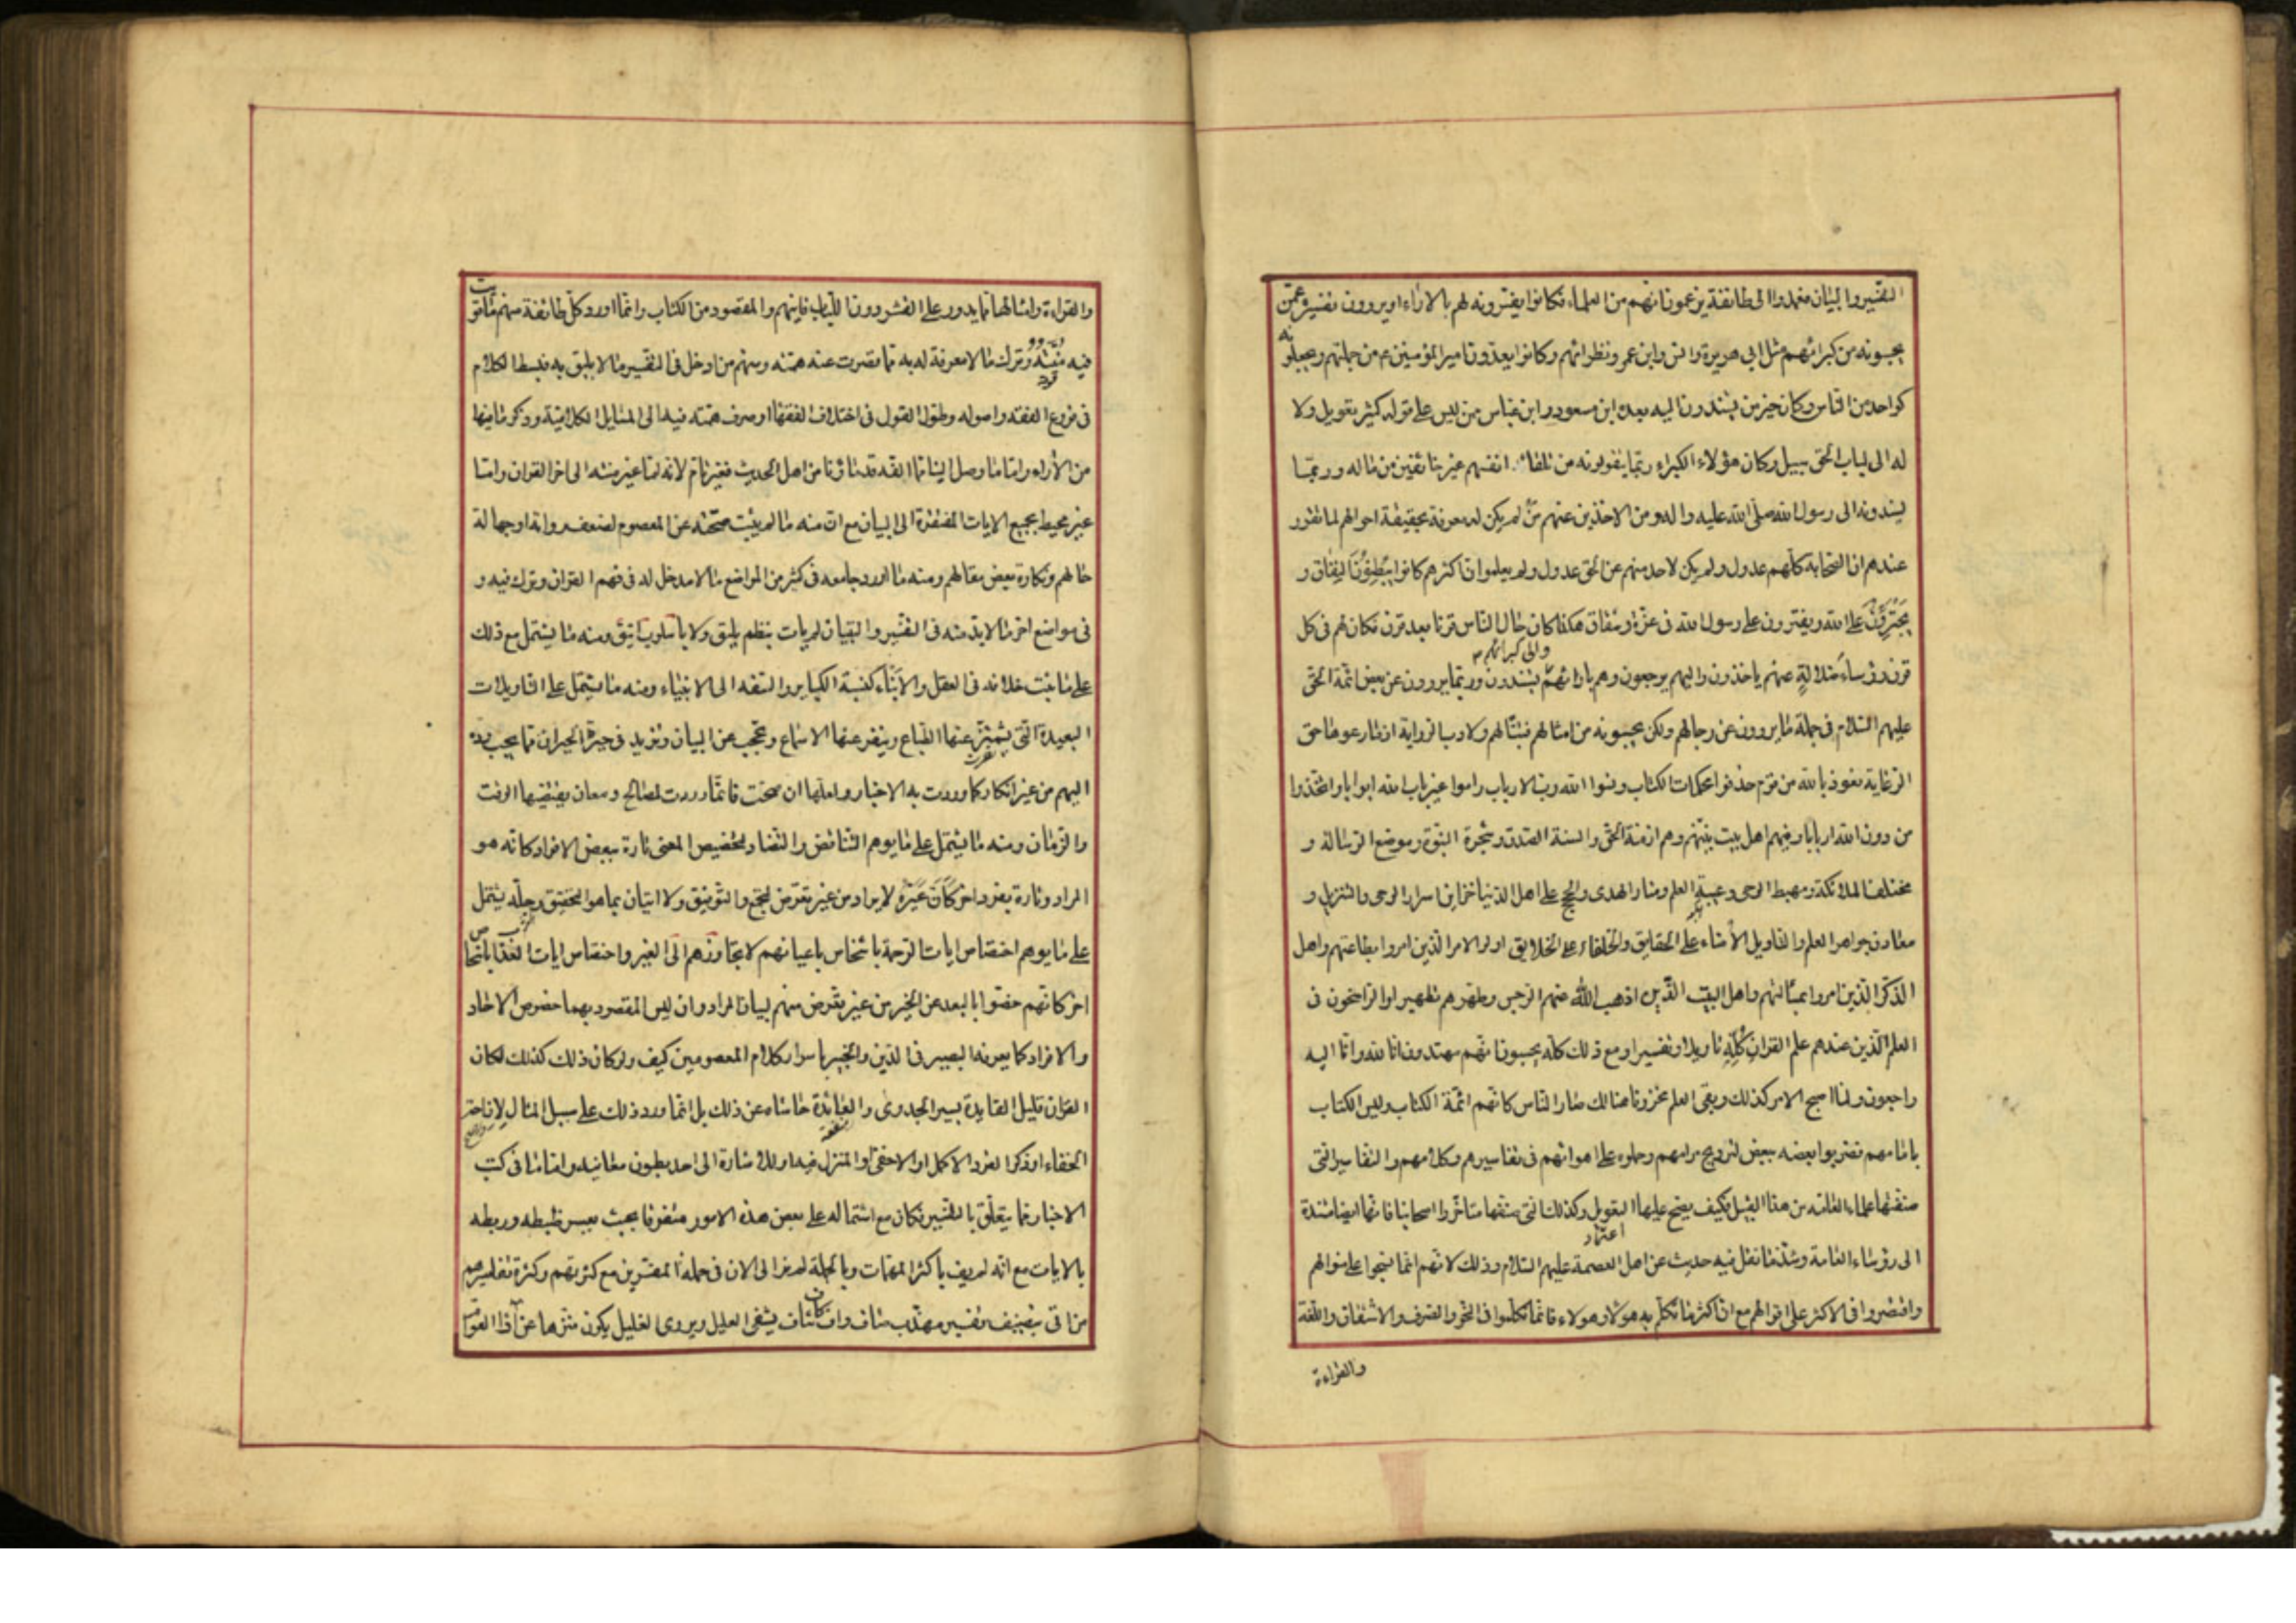 التفسير والبيان فعمدوا الى طائفة يزعمون انهم من العلماء فكانوا يفسرونه لهم بالاراء او يروون تفسيره عمّن
يحسبونه من كبرائهم مثل ابى هريرة وانس وابن عمر ونظرائهم وكانوا يعدون امير المؤمنين ع من جملتهم ويجعلونه
كواحد من الناس وكان خير من يستندون اليه بعده ابن مسعود وابن عباس ممن ليس على قوله كثير تعويل ولا
له الى لباب الحق سبيل وكان هؤلاء الكبراء ربّما يتقولونه من تلقاء انفسهم غير خائفين من ماله وربّما
يسندونه الى رسول الله صلى الله عليه واله ومن الاخذين عنهم من لم يكن له معرفة بحقيقة احوالهم لما تقرر
عندهم ان الصحابة كلّهم عدول ولم يكن لاحد منهم عن الحق عدول ولم يعلموا ان اكثرهم كانوا يبطنون النفاق و
يجترؤن على الله ويفترون على رسول الله فى عزّة وشقاق هكذا كان حال الناس قرنا بعد قرن فكان لهم فى كل
قرن رؤساء ضلالة عنهم ياخذون واليهم يرجعون وهم بارائهم يستندون وربما يروون عن بعض ائمّة الحق
والى كبرائهم
عليهم السّلام فى جملة ما يروون عن رجالهم ولكن يحسبونه من امثالهم فتبّا لهم ولادب الرواية اذ ما رعوها حق
الرعاية نعوذ بالله من قوم حذفوا محكمات الكتاب ونسوا الله ربّ الارباب راموا غير باب الله ابوابا واتخذوا
من دون الله اربابا وفيهم اهل بيت نبيّهم وهم ازمّة الحق والسنة الصّدق وشجرة النبّوة وموضع الرّسالة و
مختلف الملائكة ومهبط الوحى وعيبة العلم ومنار الهدى والحجج على اهل الدّنيا خزاين اسرار الوحى والتنزيل و
معادن جواهر العلم والتاويل الأمناء على الحقايق والخلفاء على الخلايق اولو الامر الّذين امروا بطاعتهم واهل
الذكر الّذين امروا بمسألتهم واهل البيت الّذين اذهب الله عنهم الرّجس وطهّرهم تطهيرا والراسخون فى
العلم الّذين عندهم علم القران كلّه تاويلا وتفسيرا ومع ذلك كلّه يحسبون انّهم مهتدون انا لله وانّا اليه
راجعون ولمّا اصبح الامر كذلك وبقى العلم مخزونا هنالك صار الناس كانّهم ائمّة الكتاب وليس الكتاب
بامامهم فضربوا بعضه ببعض لترويج مرامهم وحملوه على اهوائهم فى تفاسيرهم وكلامهم والتفاسير الّتى
صنفها علماء العامّة من هذا القبيل فكيف يصح عليها التعويل وكذلك الّتى صنّفها متاخّروا اصحابنا فانّها ايضا مستندة
اعتماد
الى رؤساء العامّة وشذّ ما نقل فيه حديث عن اهل العصمة عليهم السّلام وذلك لانّهم انّما نسجوا على منوالهم
واقتصروا فى الاكثر على اقوالهم مع ان اكثر ما تكلّم به هؤلاء وهؤلاء فانّما تكلّموا فى النحو والصّرف والاشتقاق واللّغة
والقراءة
والقراءة وامثالها ممّا يدور على القشر دون اللّباب فاينهم والمقصود من الكتاب وانّما اورد كلّ طائفة منهم ما قويت
فيه منّته وترك ما لا معرفة له به ممّا قصرت عنه همّته ومنهم من ادخل فى التّفسير ما لا يليق به فبسط الكلام
فى فروع الفقه واصوله وطول القول فى اختلاف الفقهاء او صرف همّته فيه الى المسايل الكلاميّة وذكر ما فيها
من الاراء وامّا ما وصل الينا ممّا الّفه قدماؤنا من اهل الحديث فغير تام لانه امّا غير منته الى اخر القران وامّا
غير محيط بجميع الايات المفتقرة الى البيان مع ان منه ما لم يثبت صحّته عن المعصوم لضعف رواته او جهالة
حالهم ونكارة بعض مقالهم ومنه ما اورد جامعه فى كثير من المواضع ما لا مدخل له فى فهم القران وترك فيه و
فى مواضع اخر ما لا بدّ منه فى التفسير والتبيان لم يات بنظم يليق ولا باسلوب انيق ومنه ما يشتمل مع ذلك
على ما ثبت خلافه فى العقل والانباء كنسبة الكباير والسّفه الى الانبياء ومنه ما يشتمل على التاويلات
البعيدة الّتى يشمئز عنها الطّباع وينفر عنها الاسماع وتحجب عن البيان وتزيد فى حيرة الحيران ممّا يجب ردّه
اليهم من غير انكار كما وردت به الاخبار ولعلّها ان صحّت فانّما وردت لمصالح ومعان يقتضيها الوقت
والزمان ومنه ما يشتمل على ما يوهم التناقض والتضاد لتخصيص المعنى تارة ببعض الافراد كانّه هو
المراد وتارة بفرد اخر كأنّ غيره لا يراد من غير تعرّض للجمع والتوفيق ولا اتيان بما هو التحقيق وجلّه يشتمل
على ما يوهم اختصاص ايات الرّحمة باشخاص باعيانهم لا تتجاوزهم الى الغير واختصاص ايات العذاب باشخاص
اخر كانّهم خصّوا بالبعد عن الخير من غير تعرّض منهم لبيان المراد وان ليس المقصود بهما خصوص الاحاد
والافراد كما يعرفه البصير فى الدّين والخبير باسرار كلام المعصومين كيف ولو كان ذلك كذلك لكان
القران قليل الفايدة يسير الجدوى والعائدة حاشاه عن ذلك بل انّما ورد ذلك على سبيل المثال لازاحة
الخفاء او ذكر الفرد الاكمل او الاخفى او المنزل فيه او للاشارة الى احد بطون معانيه وامّا ما فى كتب
الاخبار ممّا يتعلّق بالتفسير فكان مع اشتماله على بعض هذه الامور متفرقا بحيث يعسر ضبطه وربطه
بالايات مع انّه لم يف باكثر المهمّات وبالجملة لم نر الى الان فى جملة المفسّرين مع كثرتهم وكثرة تفاسيرهم
من اتى بتصنيف تفسير مهذّب صاف واف كاف شاف يشفى العليل ويروى الغليل يكون منزّها عن اراء العوام